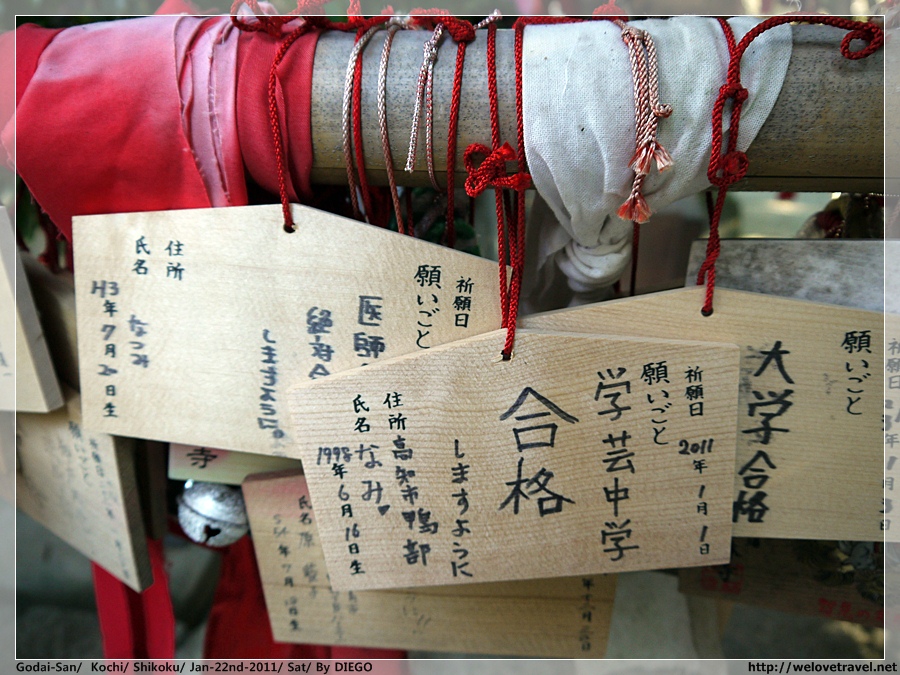 祈願日
2011年1月1日
願いごと
学芸中学
合格
しますように
住所
高知市鴨部
氏名
なみ♥
1998年6月16日生
祈願日
願いごと
医師
絶対合
しますように
住所
氏名
なつみ
H3年7月20日生
願いごと
大学合格
寺
氏名
Godai-San/ Kochi/ Shikoku/ Jan-22nd-2011/ Sat/ By DIEGO
http://welovetravel.net